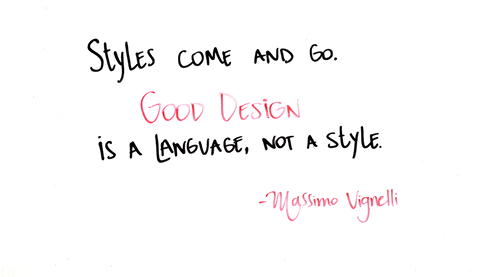 Styles come and go.
Good Design
is a language, not a style.
-Massimo Vignelli